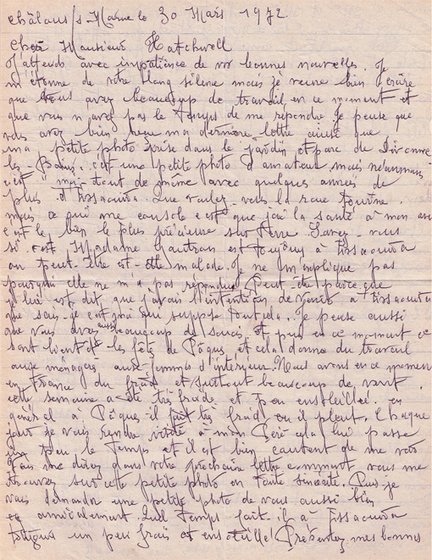 Châlons s/ Marne le 30 Mars 1972.
Cher Monsieur Hatchwell
J'attends avec impatience de vos bonnes nouvelles. Je
m'étonne de votre long silence mais je veux bien croire
que vous avez beaucoup de travail en ce moment et
que vous n'avez pas le temps de me repondre. Je pense que
vous avez bien reçu ma dernière lettre ainsi que
ma petite photo prise dans le jardin et parc de Divonne
les Bains. c'est une petite photo d'amateur mais néanmoins
c'est moi tout de même avec quelques années de
plus d'Essaouira. Que voulez-vous la roue tourne.
mais ce qui me console c'est que j'ai la santé a mon
c'est le bien le plus précieux sur terre. Savez-vous
si c'est Madame Gautran est toujours à Essaouira
ou peut-être est-elle malade. Je ne m'explique pas
pourquoi elle ne m'a pas repondu. Peut-être parceque
je lui est dit que j'avais l'intention de venir à Essaouira
que sais-je c'est moi qui suppose tout cela. Je pense aussi
que vous avez aussi beaucoup de soucis et puis en ce moment ce
sont bientôt les fêtes de Pâques et cela donne du travail
aux ménagères aux femmes d'intérieur. Nous avons en ce moment
du froid et surtout beaucoup de vent.
cette semaine a été très froide et peu ensoleillée. en
général à Pâques il fait très froid ou il pleut. Chaque
jour je vais rendre visite à mon Père cela lui passe
un peu le temps et il est bien content de me voir
Vous me direz dans votre prochaine lettre comment vous me
trouvez sur cette petite photo en toute sincerité. Puis je
vous demander une petite photo de vous aussi bien
. Quel temps fait-il à Essaouira
toujours un peu frais et ensoleillé. Présentez mes bonnes